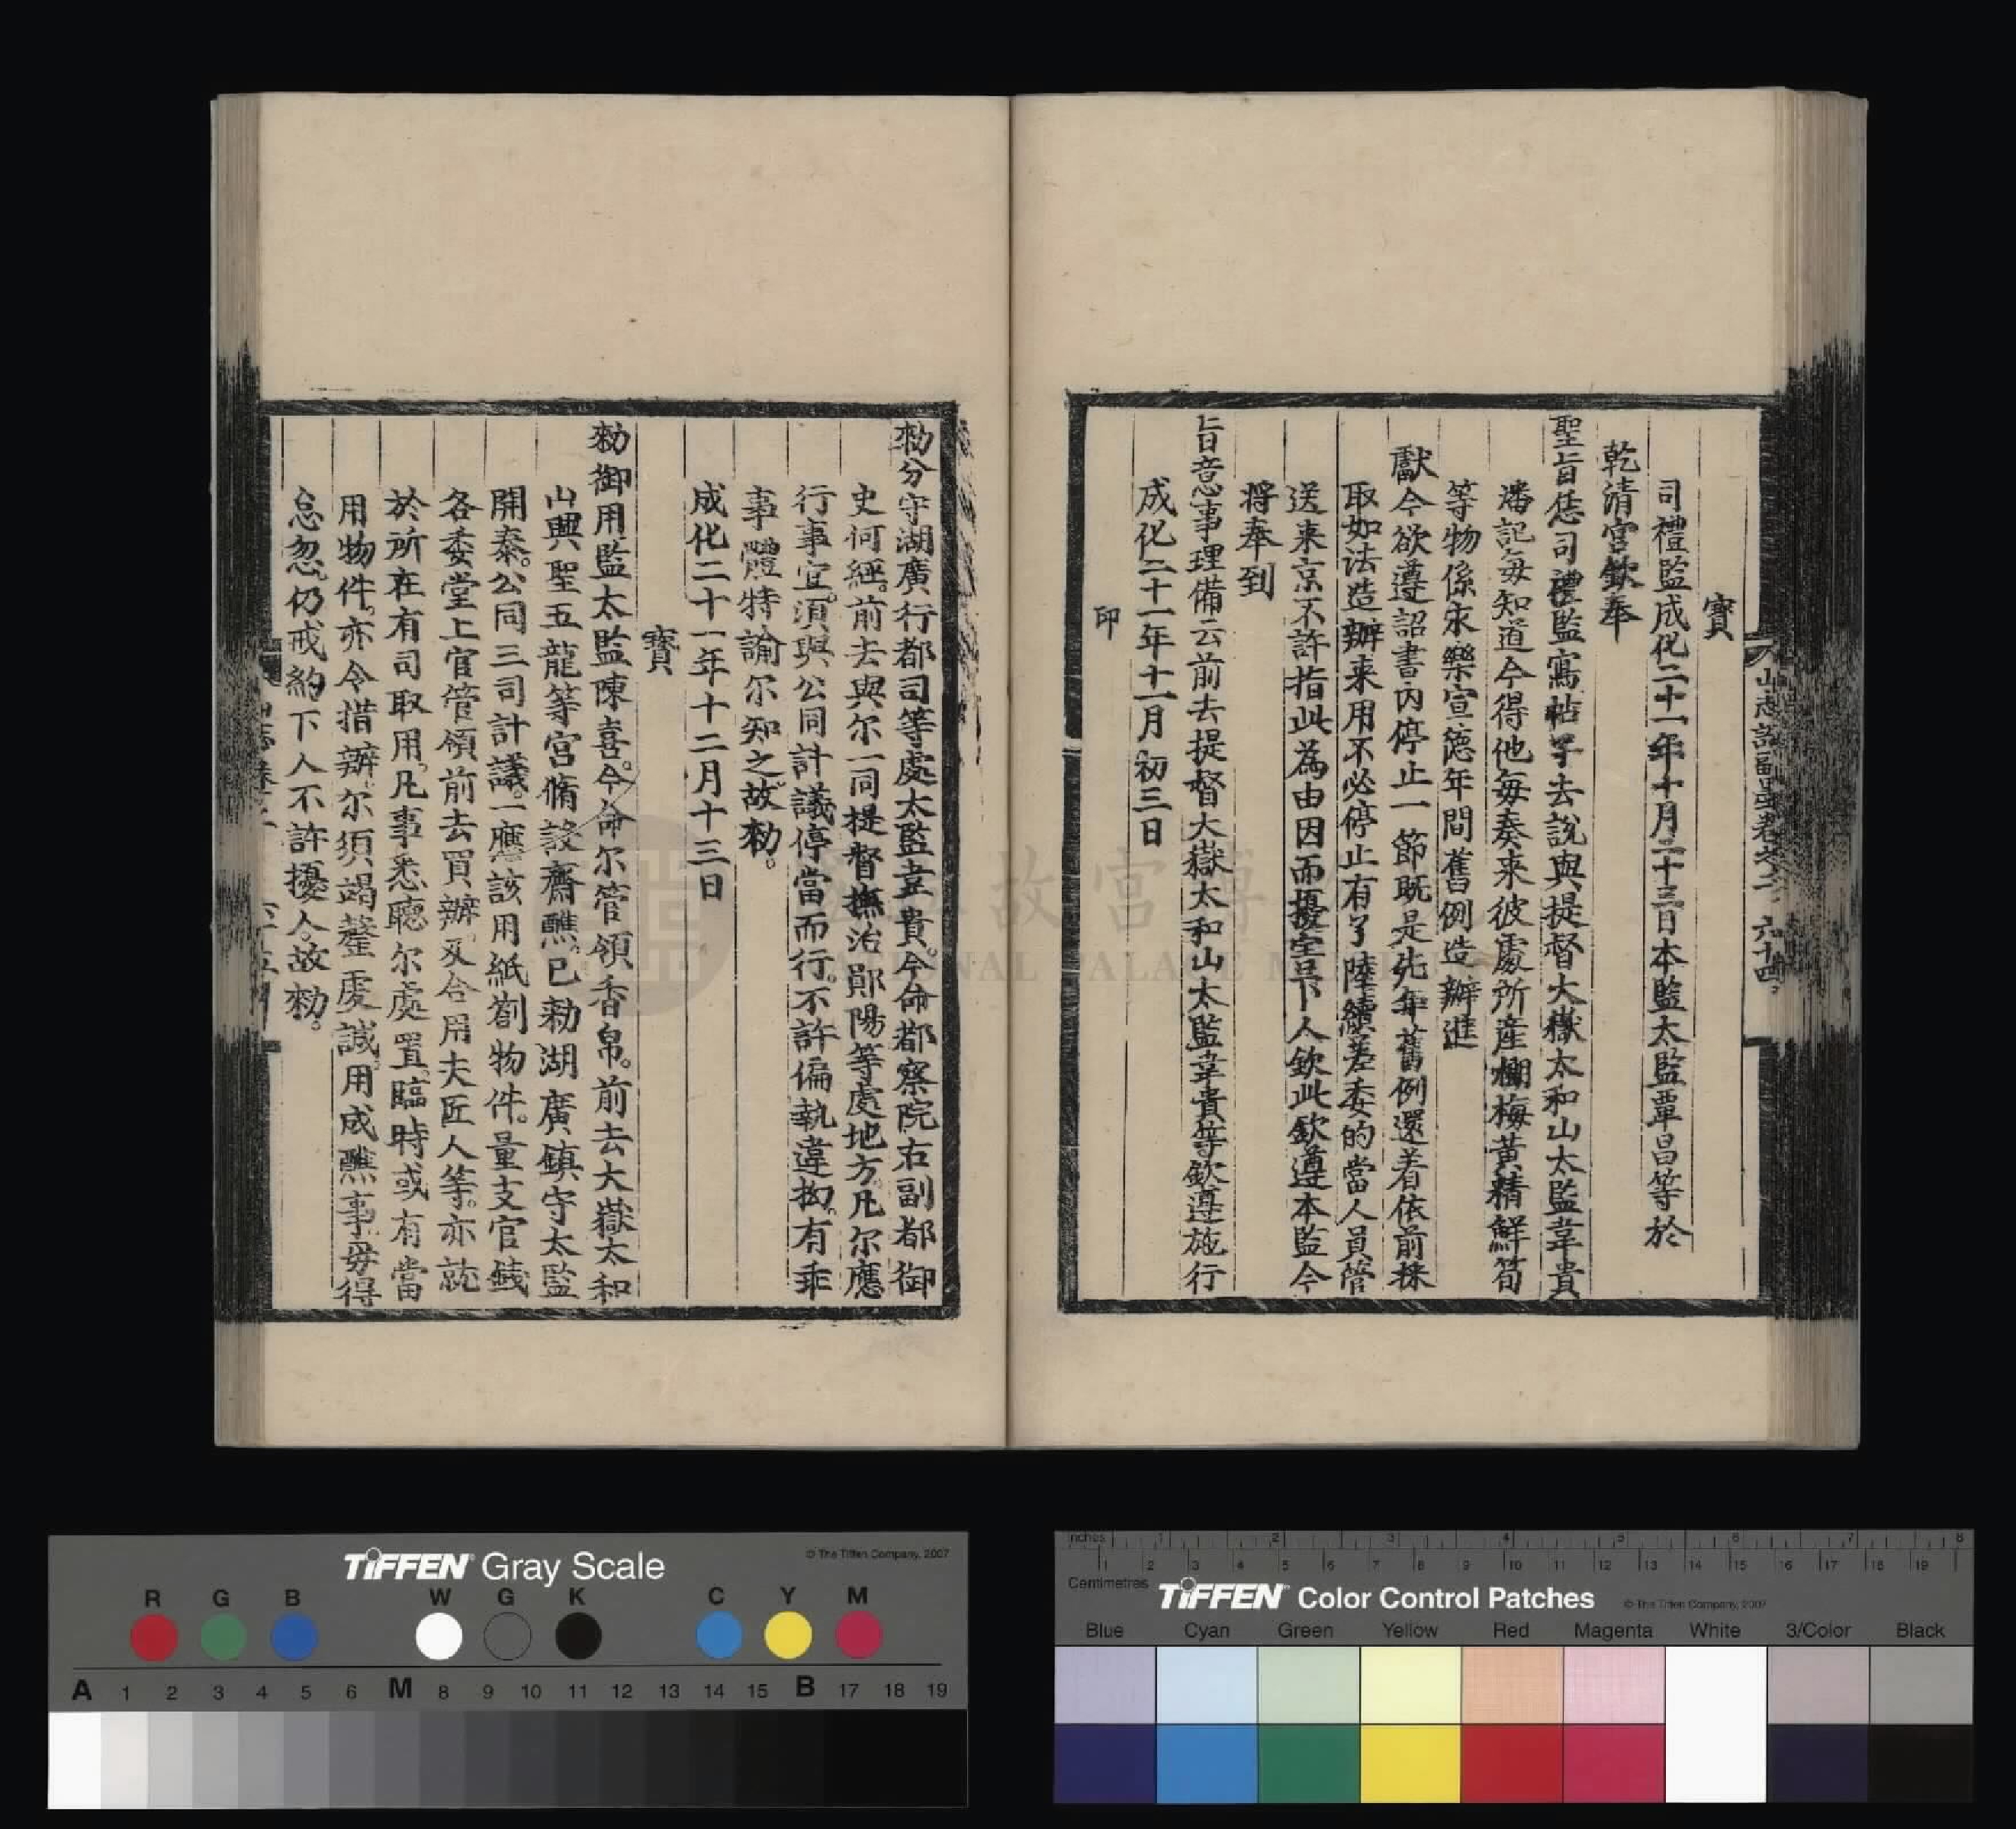 寶
司禮監成化二十一年十月二十三日本監太監覃昌等於
乾清宮欽奉
聖旨恁司禮監寫帖子去說與提督大嶽太和山太監韋貴
潘記每知道今得他每奏来彼處所産榔梅黄精鮮筍
等物係永樂宣德年間舊例造辦進
獻今欲遵詔書內停止一節旣是先年舊例還着依前採
取如法造辦来用不必停止有了陸續差委的當人員管
送来京不許指此為由因而擾害下人欽此欽遵本監今
将奉到
旨意事理備云前去提督大嶽太和山太監韋貴等欽遵施行
成化二十一年十一月初三日
印
六十四
勑分守湖廣行都司等處太監韋貴。今命都察院右副都御
史何經。前去與尔一同提督撫治鄖陽等處地方。凡尔應
行事宜。須與公同計議停當而行。不許偏執違拗。有乖
事體。特諭尔知之。故勑。
成化二十一年十二月十三日
寶
勑御用監太監陳喜。今命尔管領香帛。前去大嶽太和
山興聖五龍等宮脩設齋醮。已勑湖廣鎮守太監
開泰。公同三司計議。一應該用紙劄物件。量支官錢
各委堂上官管領前去買辦。及合用夫匠人等。亦就
於所在有司取用。凡事悉聽尔處置。臨時或有當
用物件。亦令措辦。尔須竭虔誠。用成醮事。毋得
怠忽。仍戒約下人不許擾人。故勑。
國立故宮博
NATIONAL PALACE M
TIFFEN Gray Scale
© The Tiffen Company, 2007
R G B W G K C Y M
A 1 2 3 4 5 6 M 8 9 10 11 12 13 14 15 B 17 18 19
Inches 1 2 3 4 5 6 7 8
1 2 3 4 5 6 7 8 9 10 11 12 13 14 15 16 17 18 19
Centimetres
TIFFEN Color Control Patches
© The Tiffen Company, 2007
Blue Cyan Green Yellow Red Magenta White 3/Color Black